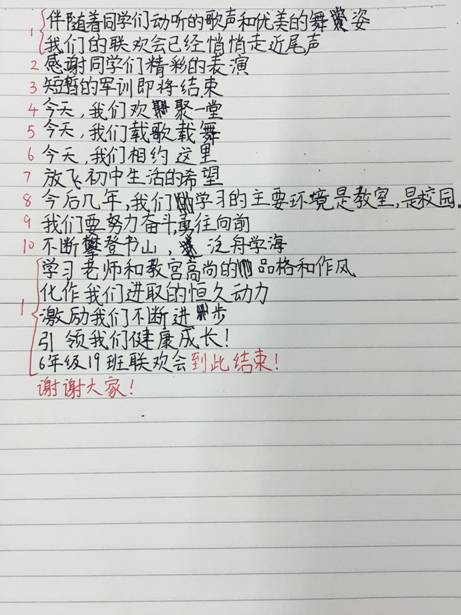 1 伴随着同学们动听的歌声和优美的舞姿
我们的联欢会已经悄悄走近尾声
2 感谢同学们精彩的表演
3 短暂的军训即将结束
4 今天,我们欢聚一堂
5 今天,我们载歌载舞
6 今天,我们相约这里
7 放飞初中生活的希望
8 今后几年,我们学习的主要环境是教室,是校园.
9 我们要努力奋斗勇往向前
10 不断攀登书山,泛舟学海
1 学习老师和教官高尚的品格和作风
化作我们进取的恒久动力
激励我们不断进步
引领我们健康成长!
6年级19班联欢会到此结束!
谢谢大家!